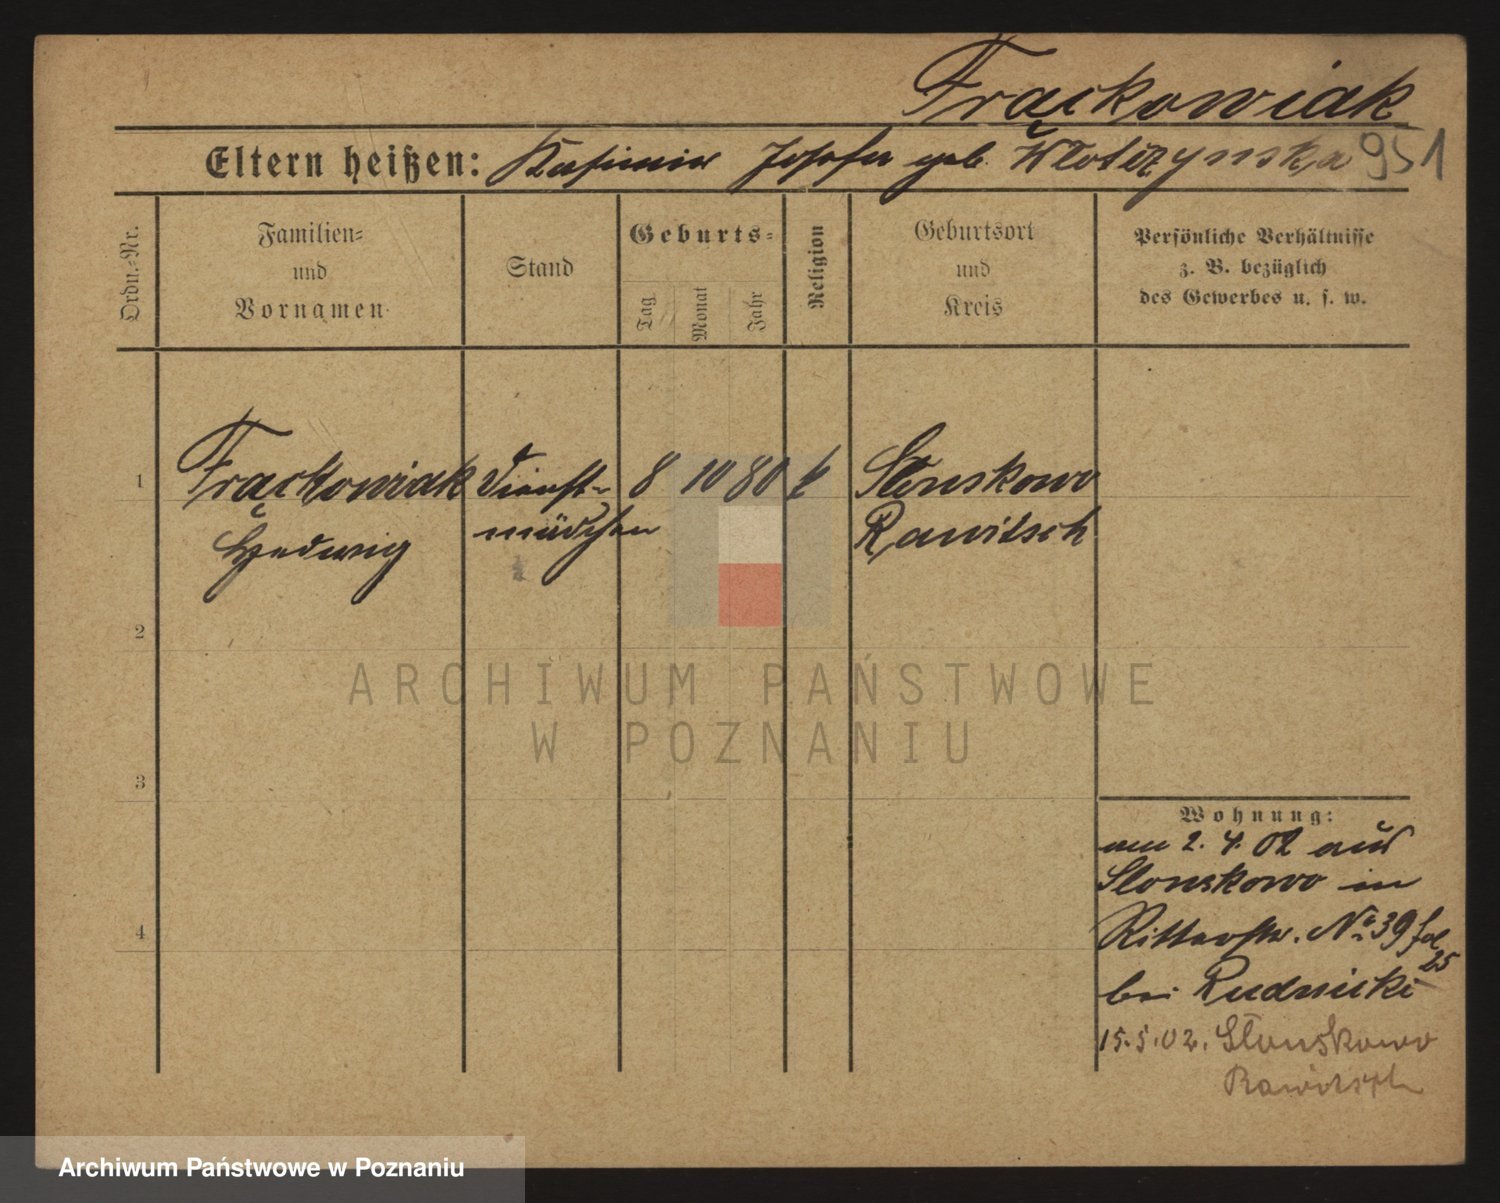 Frąckowiak
Eltern heißen: Kasimir Josefa geb. Włotczynska 951
Ordn.-Nr.
Familien-
und
Vornamen
Stand
Geburts-
Tag
Monat
Jahr
Religion
Geburtsort
und
Kreis
Persönliche Verhältnisse
z. B. bezüglich
des Gewerbes u. s. w.
1 Frąckowiak Dienst- 8 10 80 k Slonskowo
Hedwig mädchen Rawitsch
2
3
4
Wohnung:
am 2. 4. 02 aus
Slonskowo in
Ritterstr. No 39 fol
25
bei Rudnicki
15.5.02. Słonskowo
Rawitsch
ARCHIWUM PAŃSTWOWE
W POZNANIU
Archiwum Państwowe w Poznaniu